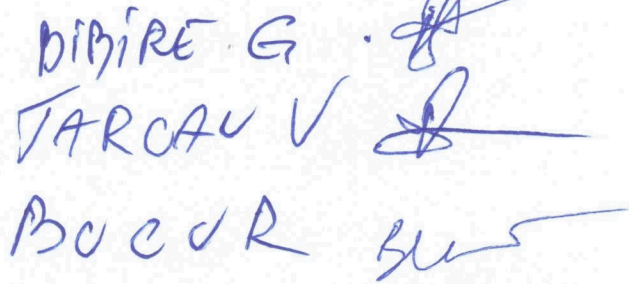 BIBIRE G.
TARCAU V
BUCUR